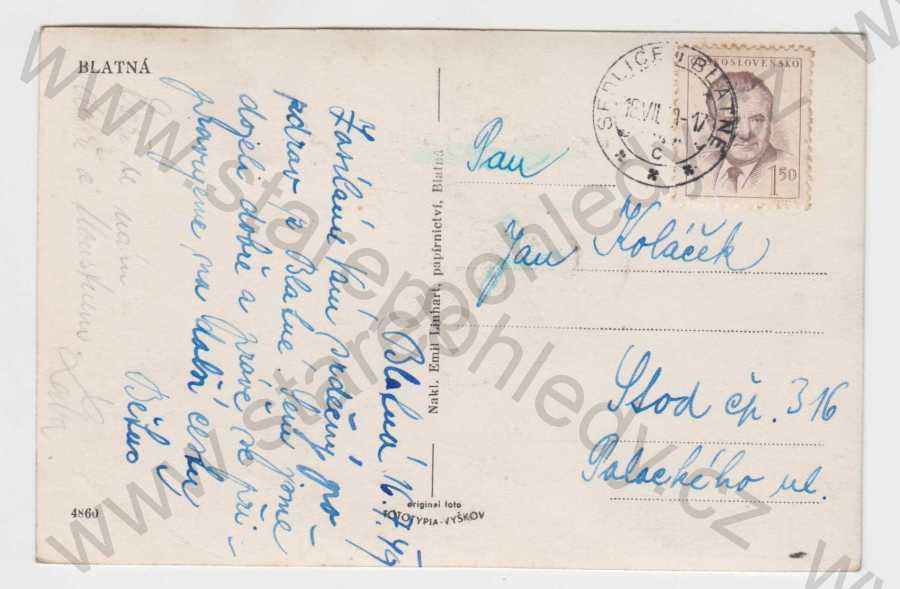 BLATNÁ
Blatná 16.VII.49
Zasíláme Vám srdečný po-
zdrav z Blatné. Sem jsme
dojeli dobře a právě se při-
pravujeme na další cestu
a
4860
Nakl. Emil Linhart, papírnictví, Blatná
original foto
FOTOTYPIA-VYŠKOV
SEDLICE U BLATNÉ
C
ČESKOSLOVENSKO
1.50
Pan
Jan Koláček
Stod čp. 316
Palackého ul.
www.starepohledy.cz